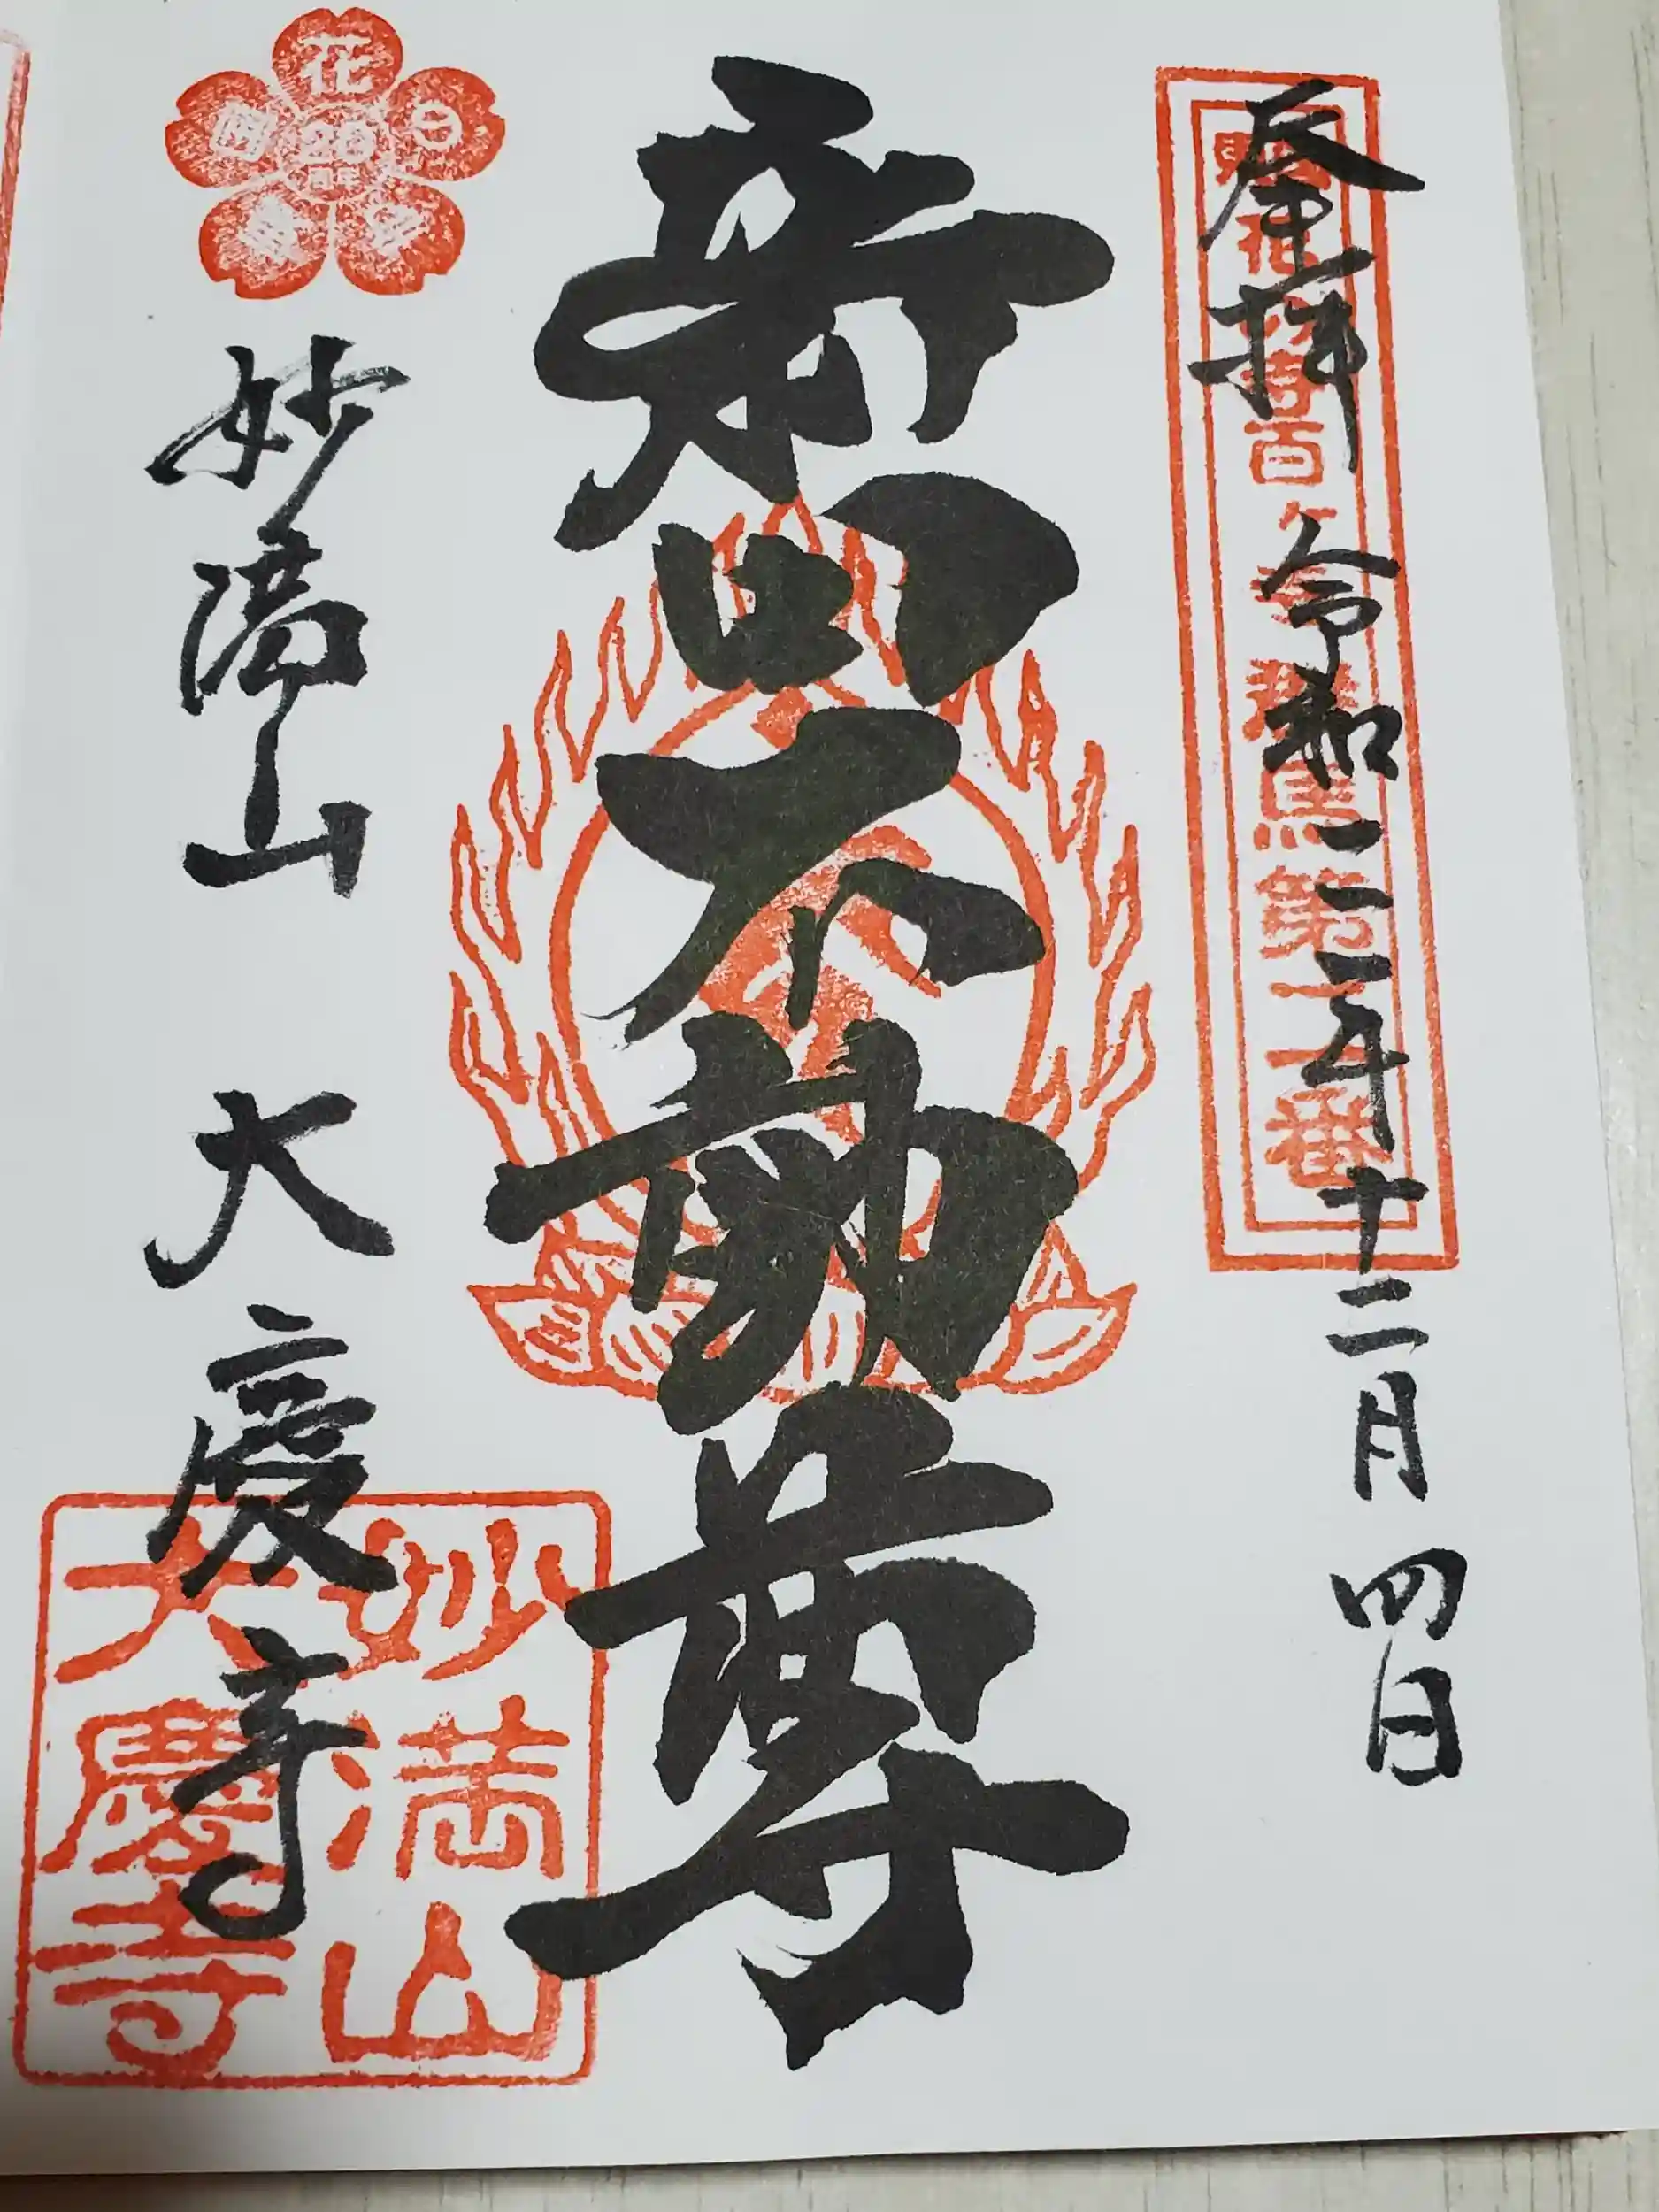 奉拝 令和二二年十二月四日
東国花の寺百ヶ寺 群馬第十一番
新田不動尊
妙満山 大慶寺
花の寺
20
周年
妙満山
大慶寺